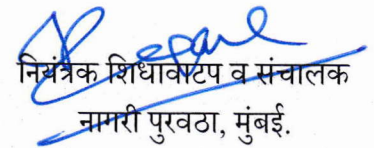 नियंत्रक शिधावाटप व संचालक
नागरी पुरवठा, मुंबई.